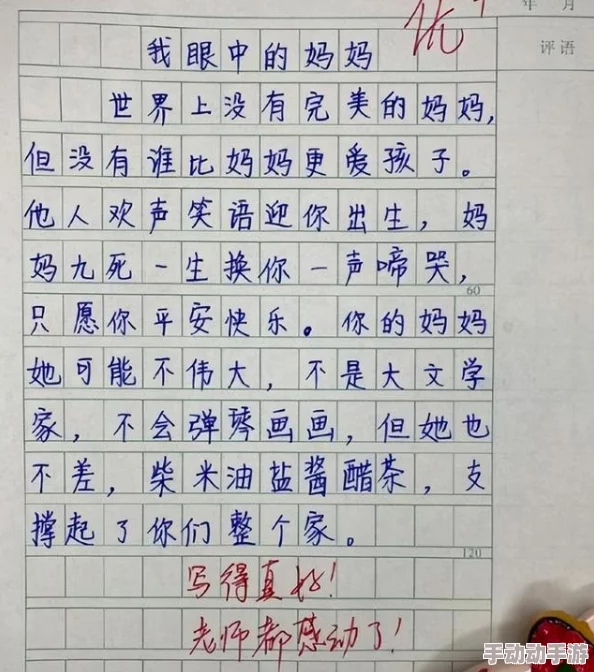 优
年 月
评语
我眼中的妈妈
世界上没有完美的妈妈,
但没有谁比妈妈更爱孩子。
他人欢声笑语迎你出生，妈
妈九死一生换你一声啼哭,
60
只愿你平安快乐。你的妈妈
她可能不伟大，不是大文学
家，不会弹琴画画，但她也
不差，柴米油盐酱醋茶，支
撑起了你们整个家。
120
写得真好!
老师都感动了!
手动动手游